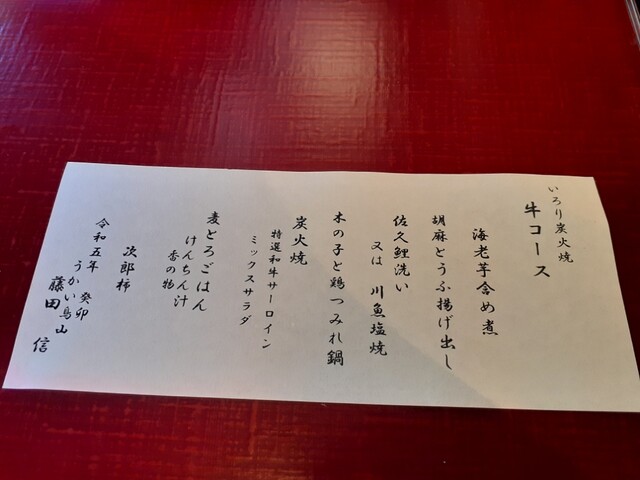 いろり炭火焼
牛コース
海老芋含め煮
胡麻とうふ揚げ出し
佐久鯉洗い
又は 川魚塩焼
木の子と鶏つみれ鍋
炭火焼
特選和牛サーロイン
ミックスサラダ
麦とろごはん
けんちん汁
香の物
次郎柿
令和五年 癸卯
うかい鳥山
藤田 信